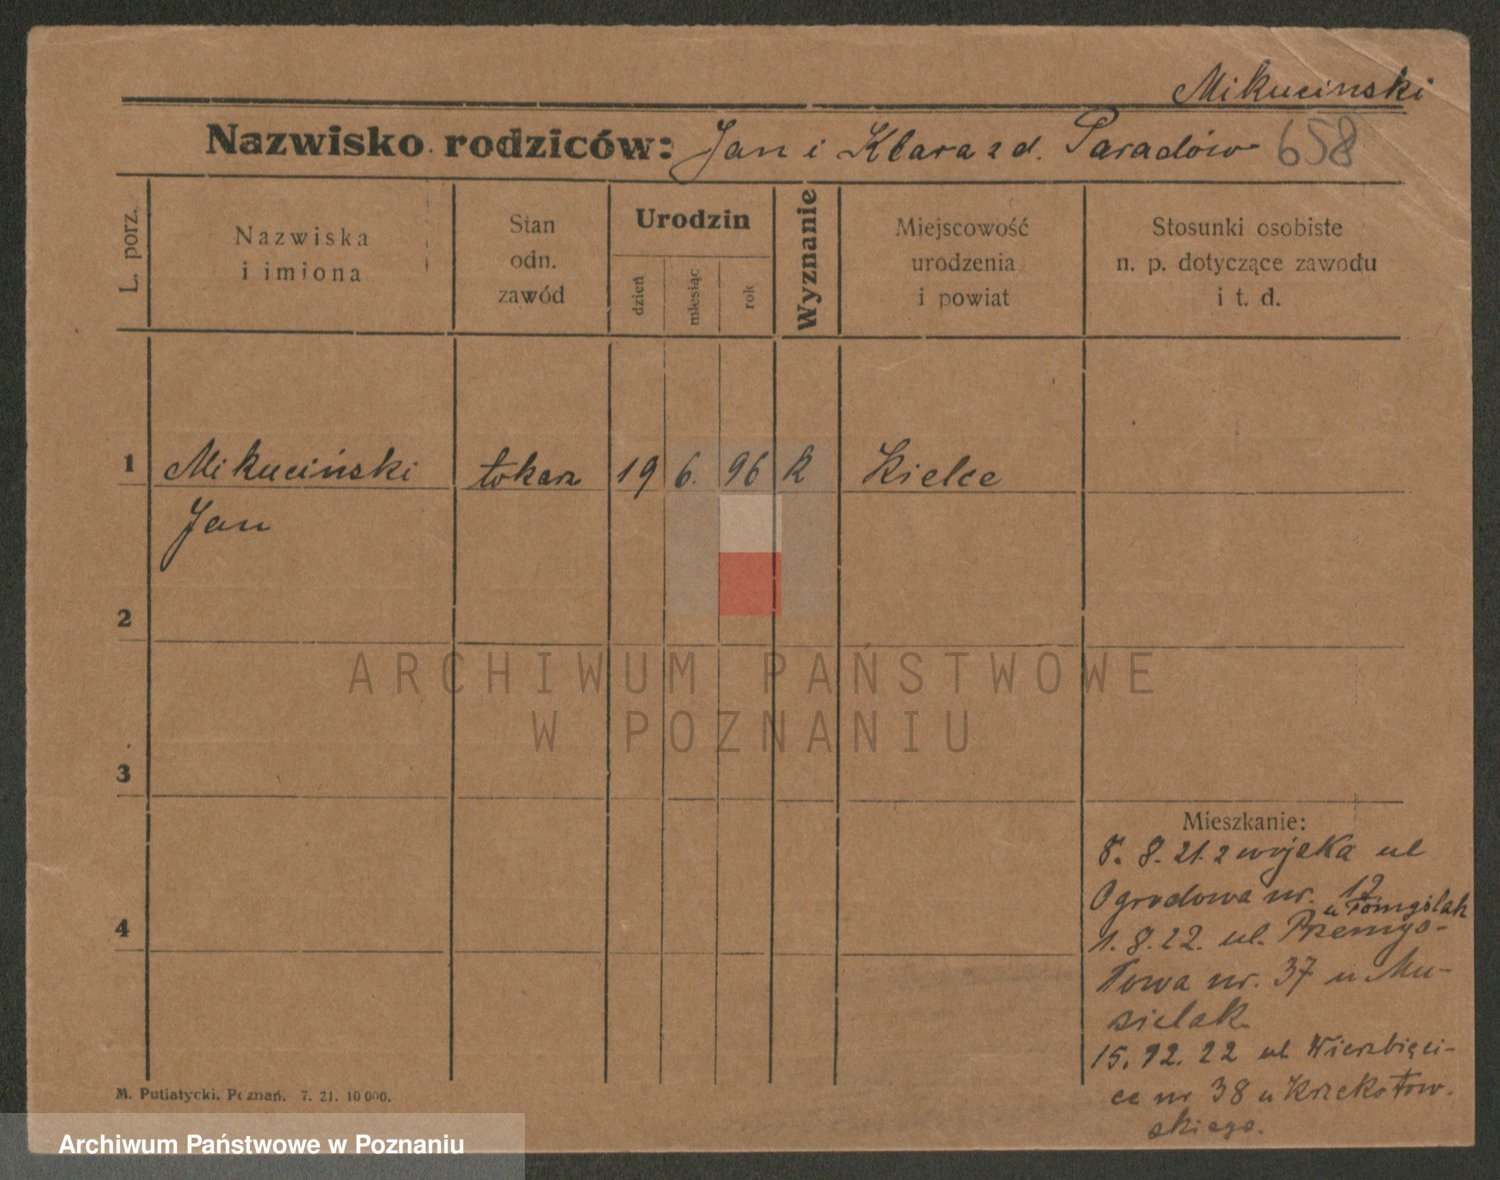 Mikucinski
Nazwisko rodziców: Jan i Klara z d. Paradów 658
L. porz.
Nazwiska
i imiona
Stan
odn.
zawód
Urodzin
dzień
miesiąc
rok
Wyznanie
Miejscowość
urodzenia
i powiat
Stosunki osobiste
n. p. dotyczące zawodu
i t. d.
1 Mikuciński tokarz 19 6. 96 k Kielce
Jan
2
ARCHIWUM PAŃSTWOWE
W POZNANIU
3
Mieszkanie:
8. 8. 21. z wojska ul
Ogrodowa nr. 12
u Tomyślak
4
1. 8. 22. ul. Przemys-
łowa nr. 37 u Mu-
sielak
15. 12. 22 ul Wierzbięci-
ce nr 38 u Krzekotow-
skiego.
M. Putiatycki, Poznań. 7. 21. 10 000.
Archiwum Państwowe w Poznaniu